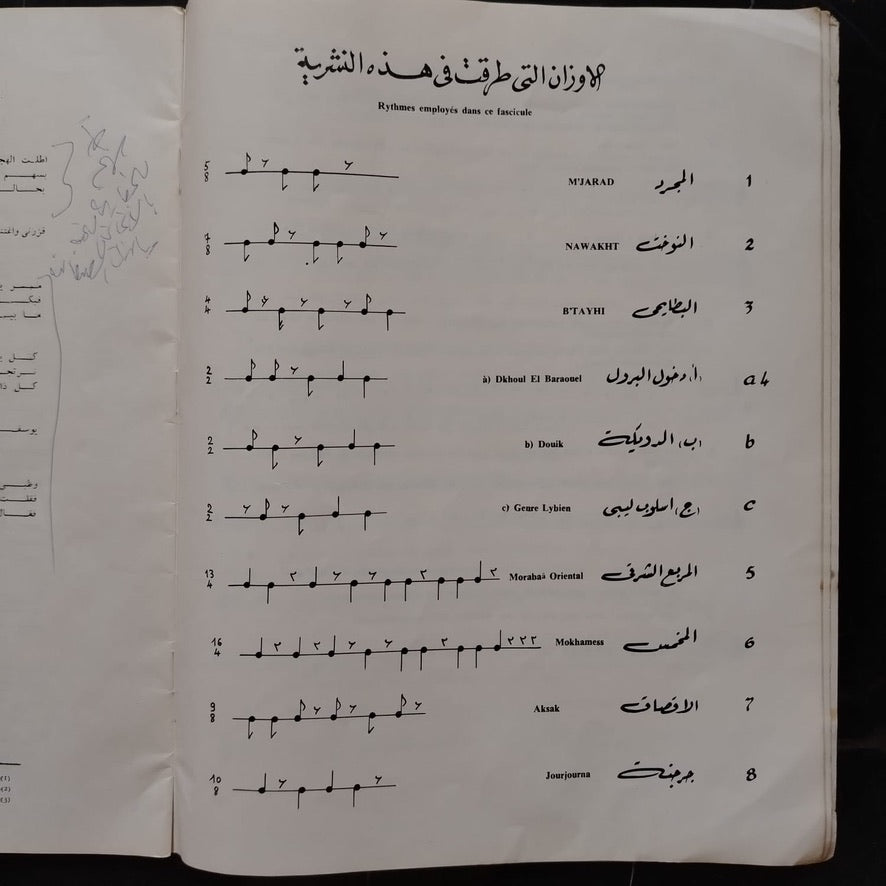 الاوزان التى طرقت فى هذه النشرية
Rythmes employés dans ce fascicule
5/8 M'JARAD المجرد 1
7/8 NAWAKHT النوخت 2
4/4 B'TAYHI البطايحى 3
2/2 à) Dkhoul El Baraouel أ) دخول البرول a 4
2/2 b) Douik ب) الدويكة b
2/2 c) Genre Lybien ج) اسلوب ليبى c
13/4 Morabaâ Oriental المربع الشرقى 5
16/4 Mokhamess المخمس 6
9/8 Aksak الاقصاق 7
10/8 Jourjourna جرجنة 8
اطلت
بسهم
فزرنى
كل
يوسف
(1)
(2)
(3)